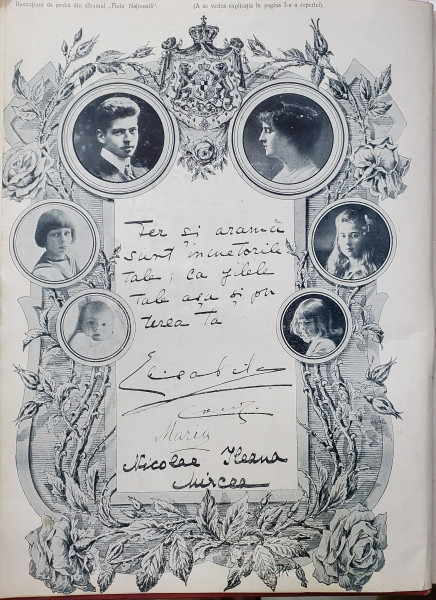 Ilustrațiuni de probă din albumul „Flota Națională". (A se vedea explicația în pagina a copertei).
Fer și aramă
sunt încuetorile
tale; ca zilele
tale așa și pu
terea ta
Elisabeta
Maria
Nicolae Ileana
Mircea